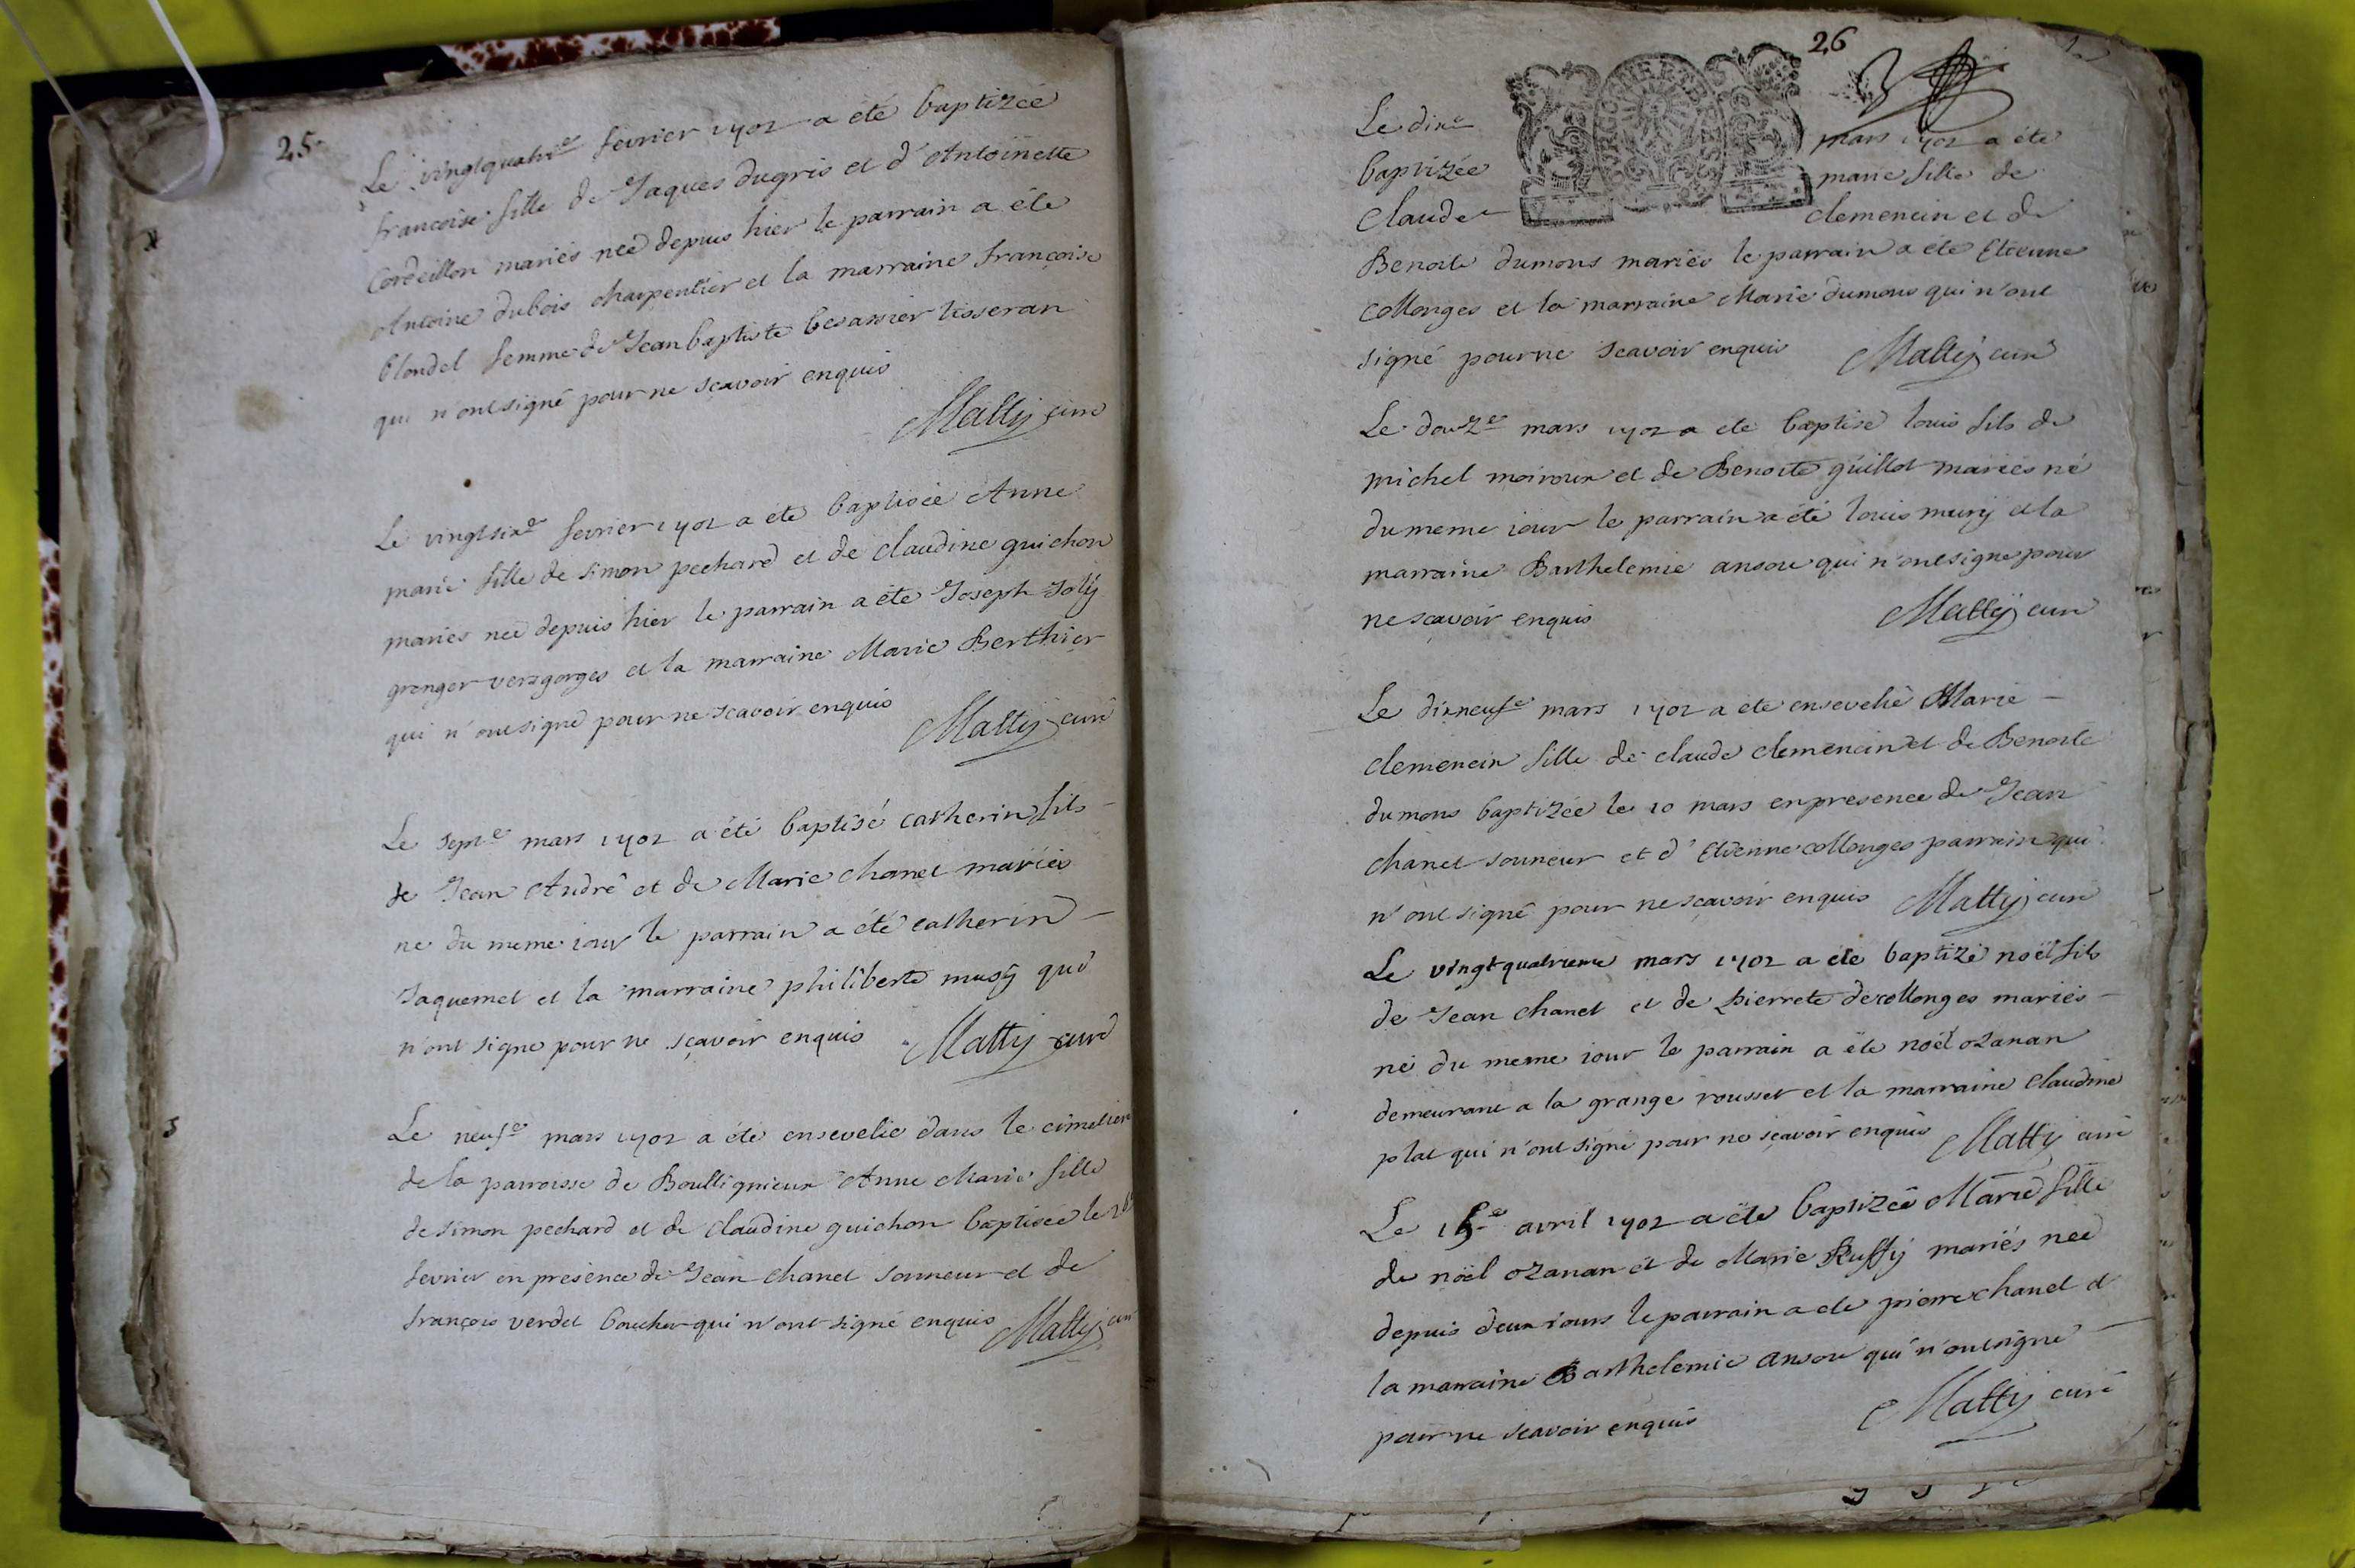 25
Le vingtquatre fevrier 1702 a été baptizée
francoise fille de Jaques dugris et d'Antoinette
Cordeillon mariés neé depuis hier le parrain a éte
Antoine dubois charpentier et la marraine françoise
blondel femme de Jean baptiste besassier tisseran
qui n'ont signé pour ne sçavoir enquis
Mattij curé
Le vingtsixe fevrier 1702 a été baptisée Anne
marie fille de simon pechard et de claudine guichon
mariés neé depuis hier le parrain a éte Joseph Jolij
grenger vers gorges et la marraine Marie Berthier
qui n'ont signé pour ne scavoir enquis
Mattij curé
Le septe mars 1702 a été baptisé catherin fils
de Jean André et de Marie chanet mariés
né du meme iour le parrain a été catherin
Jaquemet et la marraine philiberte musij qui
n'ont signe pour ne sçavoir enquis Mattij curé
Le neufe mars 1702 a été ensevelie dans le cimetier
de la parroisse de Boulligneux Anne Marie fille
de simon pechard et de claudine guichon baptisée le 26
fevrier en presence de Jean chanet sonneur et de
françois verdet boucher qui n'ont signé enquis Mattij curé
26
Le dixe mars 1702 a éte
baptizée marie fille de
Claude clemencin et de
Benoite dumons mariés le parrain a été Etienne
collonges et la marraine Marie dumons qui n'ont
signé pour ne scavoir enquis Mattij curé
Le douze mars 1702 a ete baptisé louis fils de
michel moiroux et de Benoite guillot mariés né
du meme iour le parrain a été louis murij et la
marraine Barthelemie ansou qui n'ont signe pour
ne sçavoir enquis Mattij curé
Le dixneufe mars 1702 a éte ensevelie Marie
clemencin fille de claude clemencin et de Benoite
dumons baptizée le 10 mars en presence de Jean
chanet sonneur et d'Etienne collonges parrain qui
n'ont signé pour ne sçavoir enquis Mattij curé
Le vingt quatrieme mars 1702 a été baptizé noël fils
de Jean chanet et de pierrete decollonges mariés
né du meme iour le parrain a éte noël ozanan
demeurant a la grange rousset et la marraine Claudine
plat qui n'ont signé pour ne sçavoir enquis Mattij curé
Le 15e avril 1702 a éte baptizée Marie fille
de noël ozanan et de Marie Ruffij mariés neé
depuis deux iours le parrain a éte pierre chanet et
la marraine Barthelemie ansou qui n'ont signe
pour ne scavoir enquis Mattij curé